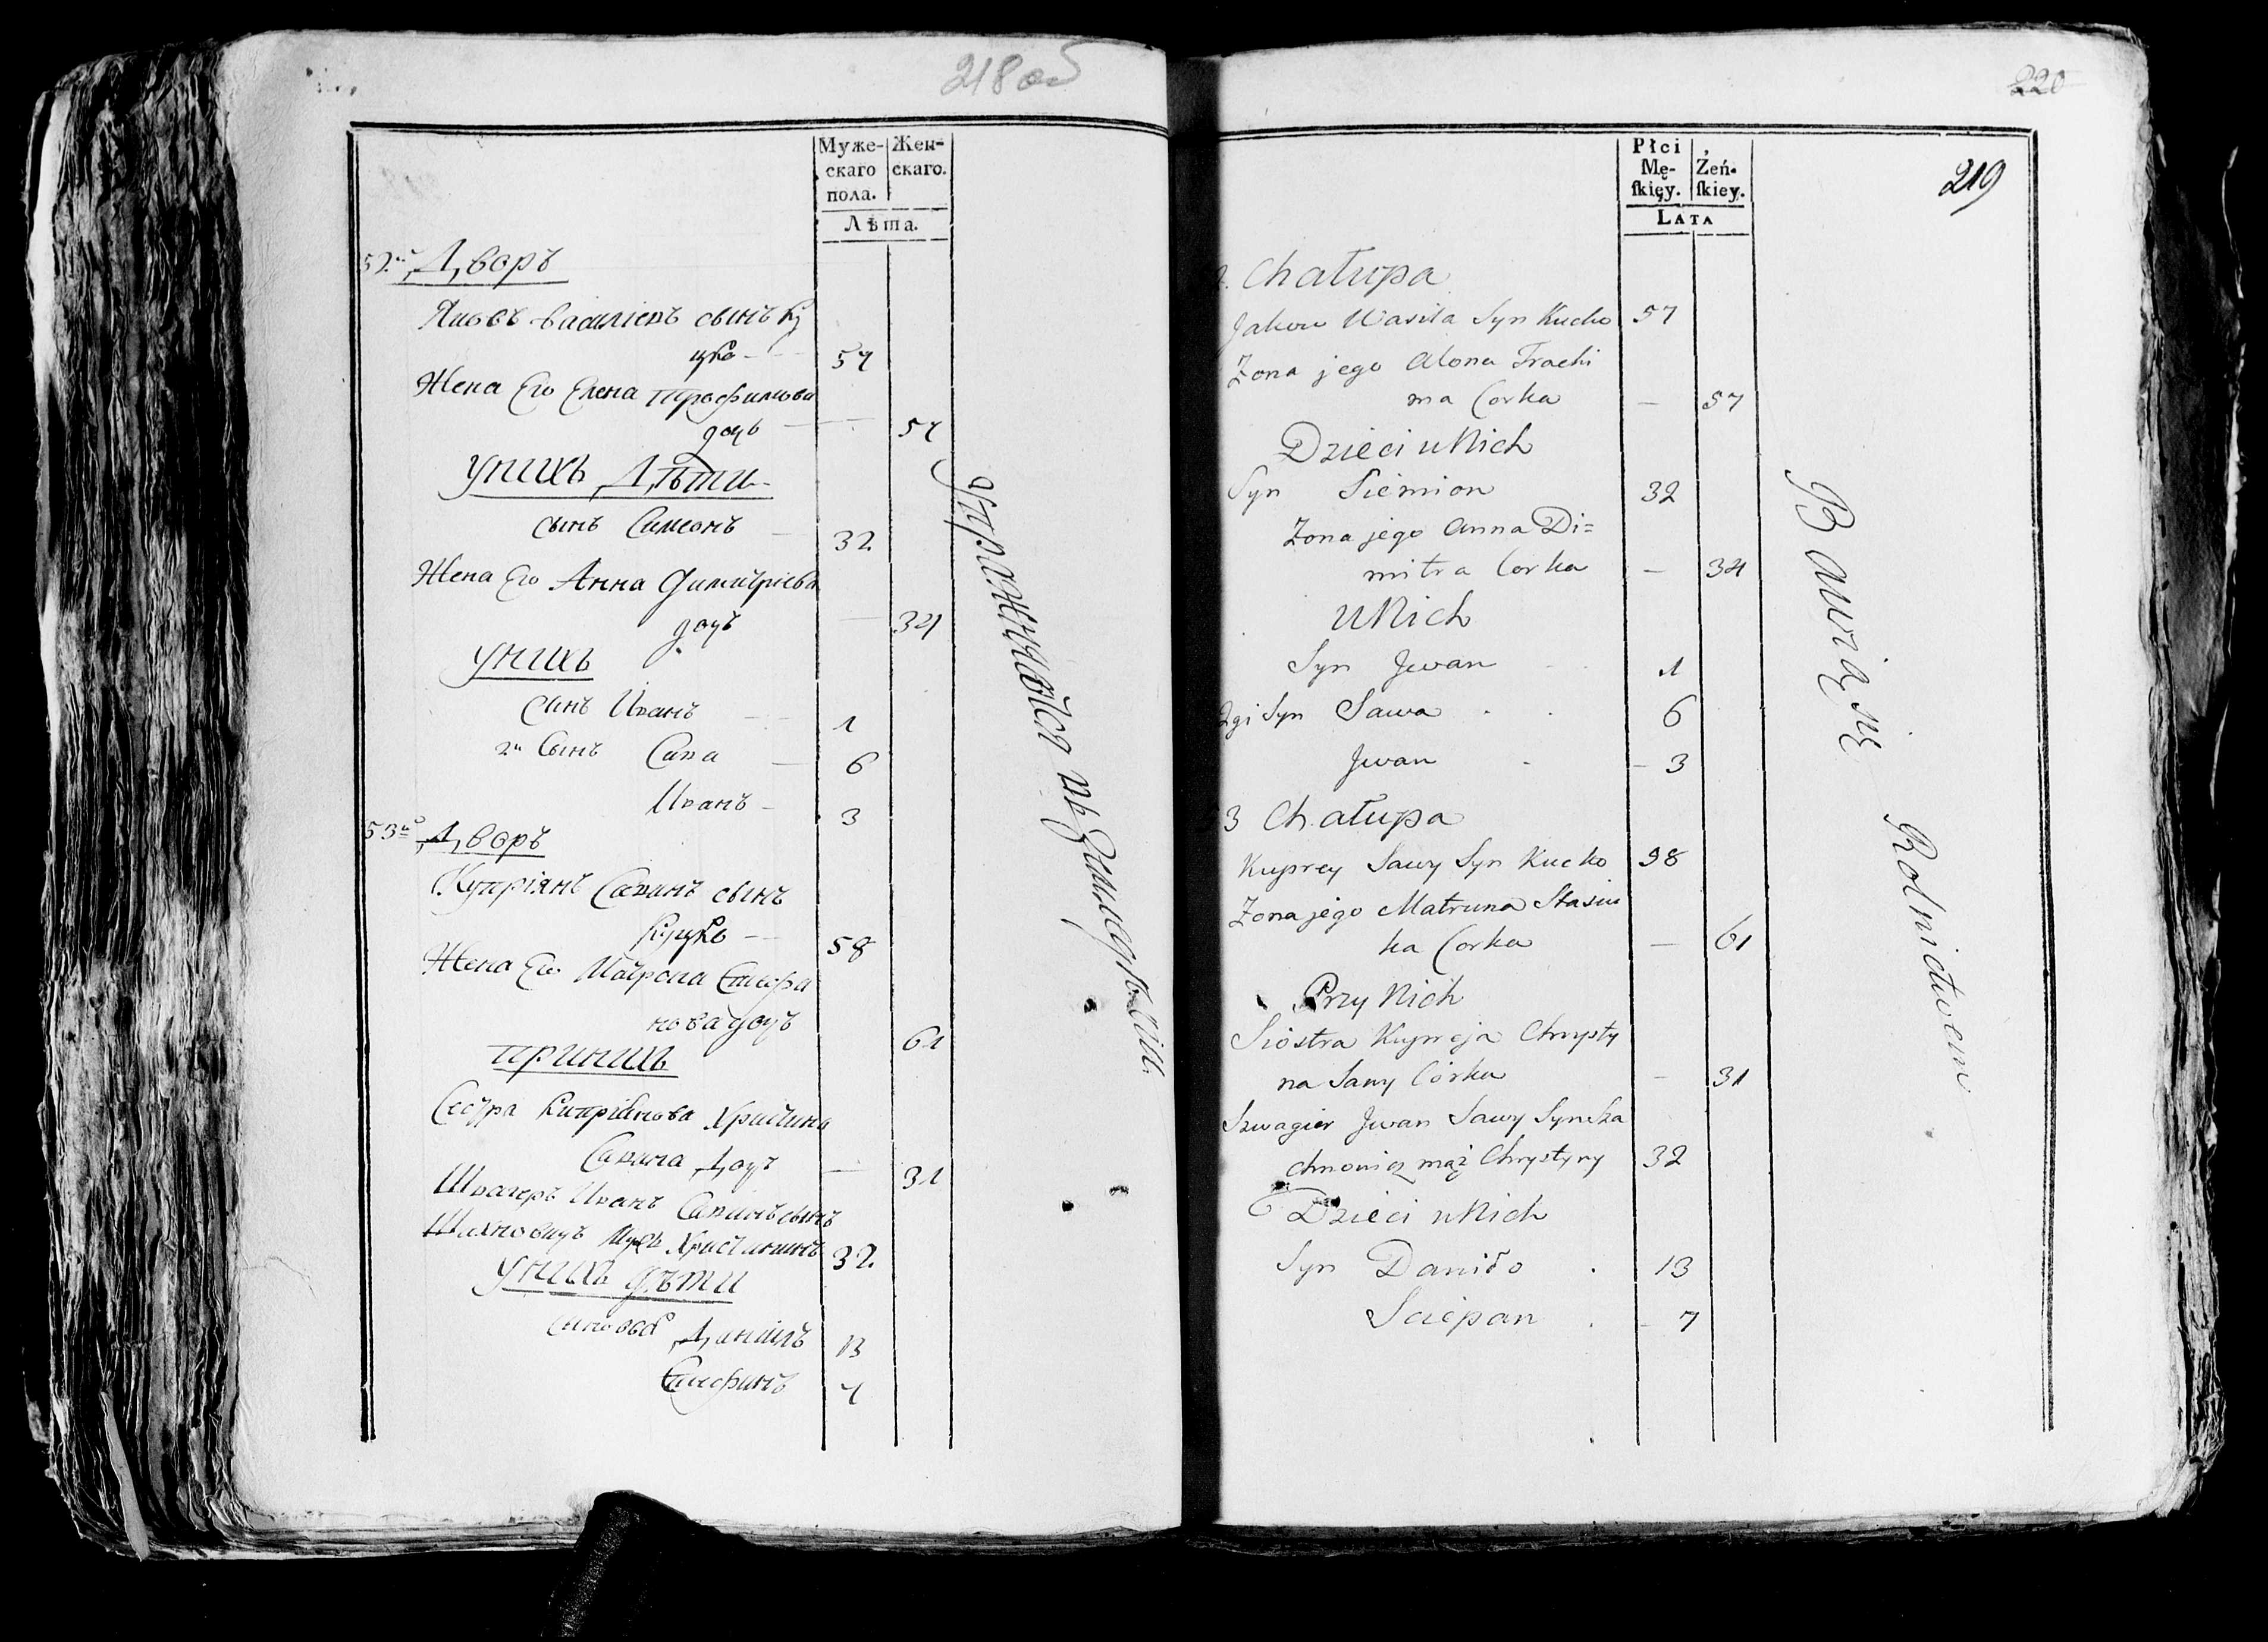 218 об
Муже-
скаго
пола.
Жен-
скаго.
Лѣта.
52й Дворъ
Яковъ Василіевъ сынъ Ку
цко - 57
Жена Его Елена Трофимова
дочь - 57
Унихъ Дѣти
сынъ Симеонъ - 32
Жена Его Анна Димитріева
дочь - 34
Унихъ
Сынъ Иванъ - 1
2й Сынъ Сава - 6
Иванъ - 3
53й Дворъ
Купріянъ Савинъ сынъ
Куцко - 58
Жена Его Матрона Стефа
нова дочь 61
При нихъ
Сестра Купріянова Христина
Савина Дочь - 31
Швагеръ Иванъ Савинъ сынъ
Шахновичъ Мужъ Христинин 32.
Унихъ дѣти
сыновья Даніилъ 13
Стефанъ 7
Упражняются въ Земледѣліи
220
219
Płci
Mę-
ſkięy.
Żeń-
ſkiey.
LATA
2. Chałupa
Jakow Wasila Syn Kucko 57
Zona jego Alona Trachi
ma Corka - 57
Dzieci u Nich
Syn Siemion 32
Zona jego Anna Di=
mitra Corka - 34
U Nich
Syn Jwan 1
2gi Syn Sawa . . 6
Jwan - 3
3 Chałupa
Kuprey Sawy Syn Kucko 98
Zona jego Matruna Stasiu
ka Corka - 61
Przy Nich
Siostra Kupreja Chrysty
na Sawy Córka - 31
Szwagier Jwan Sawy Syn Sza
chnowicz mąż Chrystyny 32
Dzieci u Nich
Syn Daniło . 13
Sciepan . - 7
Bawią się Rolnictwem